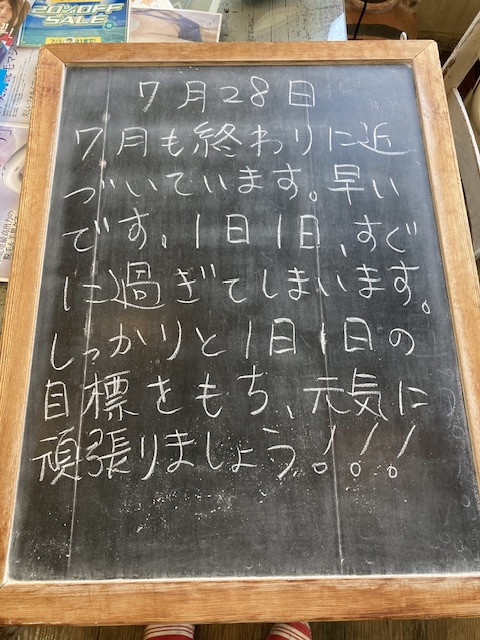 20%OFF
SALE
7月28日
7月も終わりに近
づいています。早い
です、1日1日、すぐ
に過ぎてしまいます。
しっかりと1日1日の
目標をもち、元気に
頑張りましょう!!!